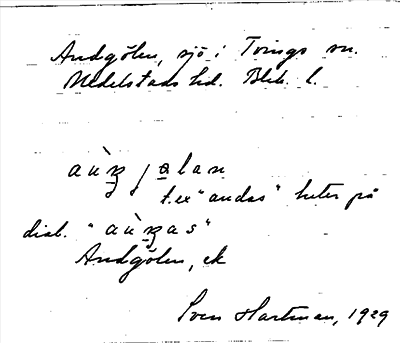 Andgölen, sjö i Tvings sn.
Medelstads hd. Blek. l.
aùn̠ jølan
t.ex "andas" heter på
dial. "aùn̠as"
Andgölen, ek
Sven Hartman, 1929